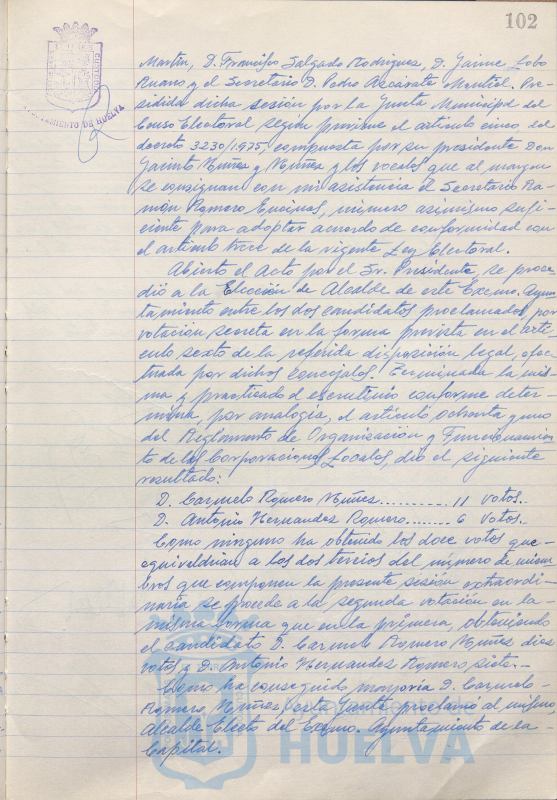 102
AYUNTAMIENTO DE HUELVA
Martín, D. Francisco Salgado Rodriguez, D. Jaime Lobo
Ruano y el Secretario D. Pedro Azcárate Montiel. Pre-
sidida dicha sesión por la Junta Municipal del
Censo Electoral según previene el artículo cinco, del
decreto 3230/1975, compuesta por su presidente Don
Jacinto Núñez y Núñez y los vocales que al margen
se consignan con mi asistencia el Secretario Ra-
món Romero Encinas, número asimismo sufi-
ciente para adoptar acuerdo de conformidad con
el artículo trece de la vigente Ley Electoral.
Abierto el Acto por el Sr. Presidente, se proce
dió a la Elección de Alcalde de este Excmo. Ayun
tamiento entre los dos candidatos proclamados, por
votación secreta en la forma prevista en el artí-
culo sexto de la referida disposición legal, efec-
tuada por dichos concejales. Terminada la mis-
ma y practicado el escrutinio conforme deter-
mina, por analogía, el artículo ochenta y uno
del Reglamento de Organización y Funcionamien
to de las Corporaciones Locales, dio el siguiente
resultado:
D. Carmelo Romero Núñez........... 11 votos..
D. Antonio Hernandez Romero........ 6 votos..
Como ninguno ha obtenido los doce votos que-
equivaldrían a los dos tercios del número de miem
bros que componen la presente sesión extraordi-
naria se procede a la segunda votación en la-
misma forma que en la primera, obteniendo
el candidato D. Carmelo Romero Núñez diez
votos y D. Antonio Hernandez Romero siete.-
Como ha conseguido mayoría D. Carmelo-
Romero Núñez, esta Junta proclamó al mismo
Alcalde Electo del Excmo. Ayuntamiento de la-
Capital.
HUELVA